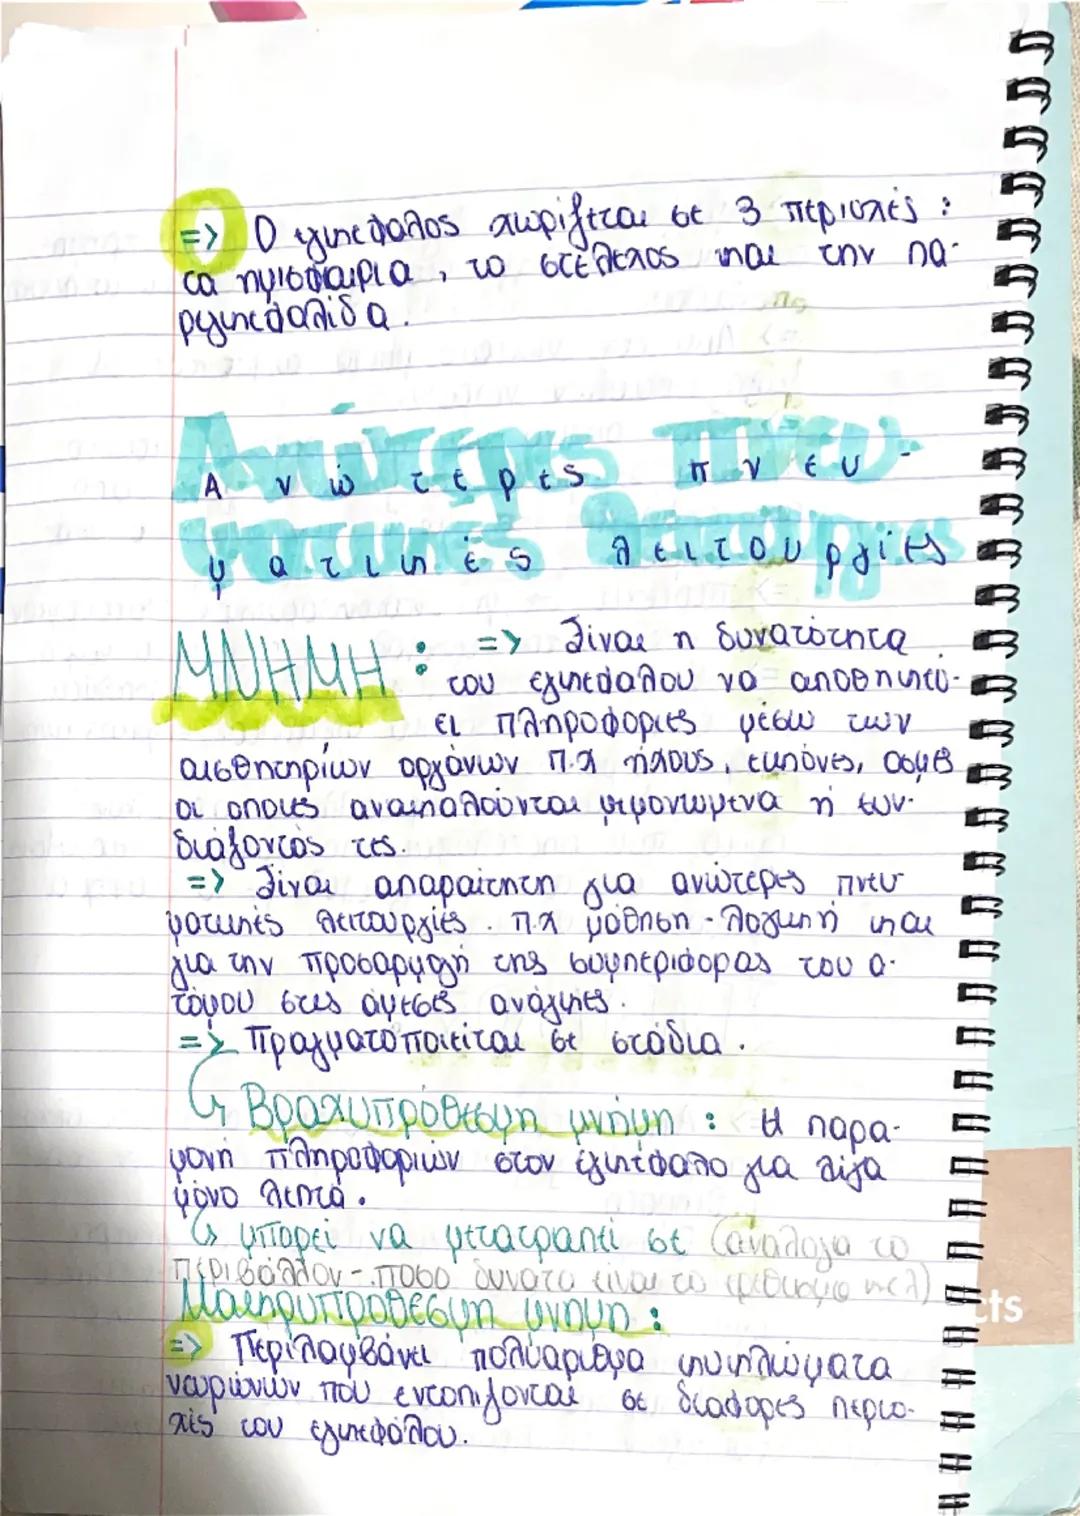 => Ο εγκέφαλος χωρίζεται σε 3 περιοχές :
τα ημισφαίρια, το στέλεχος και την πα-
ρεγκεφαλίδα.
Ανώτερες πνευ-
ματικές λειτουργίες
ΜΝΗΜΗ : => Είναι η δυνατότητα
του εγκεφάλου να αποθηκεύ-
ει πληροφορίες μέσω των
αισθητηρίων οργάνων π.χ ήχους, εικόνες, οσμές
οι οποίες ανακαλούνται μεμονωμένα ή συν-
διάζοντάς τες.
=> Είναι απαραίτητη για ανώτερες πνευ
ματικές λειτουργίες. π.χ μάθηση - λογική και
για την προσαρμογή της συμπεριφοράς του α-
τόμου στις άμεσες ανάγκες.
=> Πραγματοποιείται σε στάδια.
↳ Βραχυπρόθεσμη μνήμη : Η παρα-
μονή πληροφοριών στον εγκέφαλο για λίγα
μόνο λεπτά.
↳ μπορεί να μετατραπεί σε (ανάλογα το
περιβάλλον - ποσο δυνατο είναι το ερέθισμα κελ)
Μακρυπρόθεσμη μνήμη :
=> Περιλαμβάνει πολυάριθμα κυκλώματα
νευρώνων που εντοπίζονται σε διάφορες περιο-
χές του εγκεφάλου.
cts